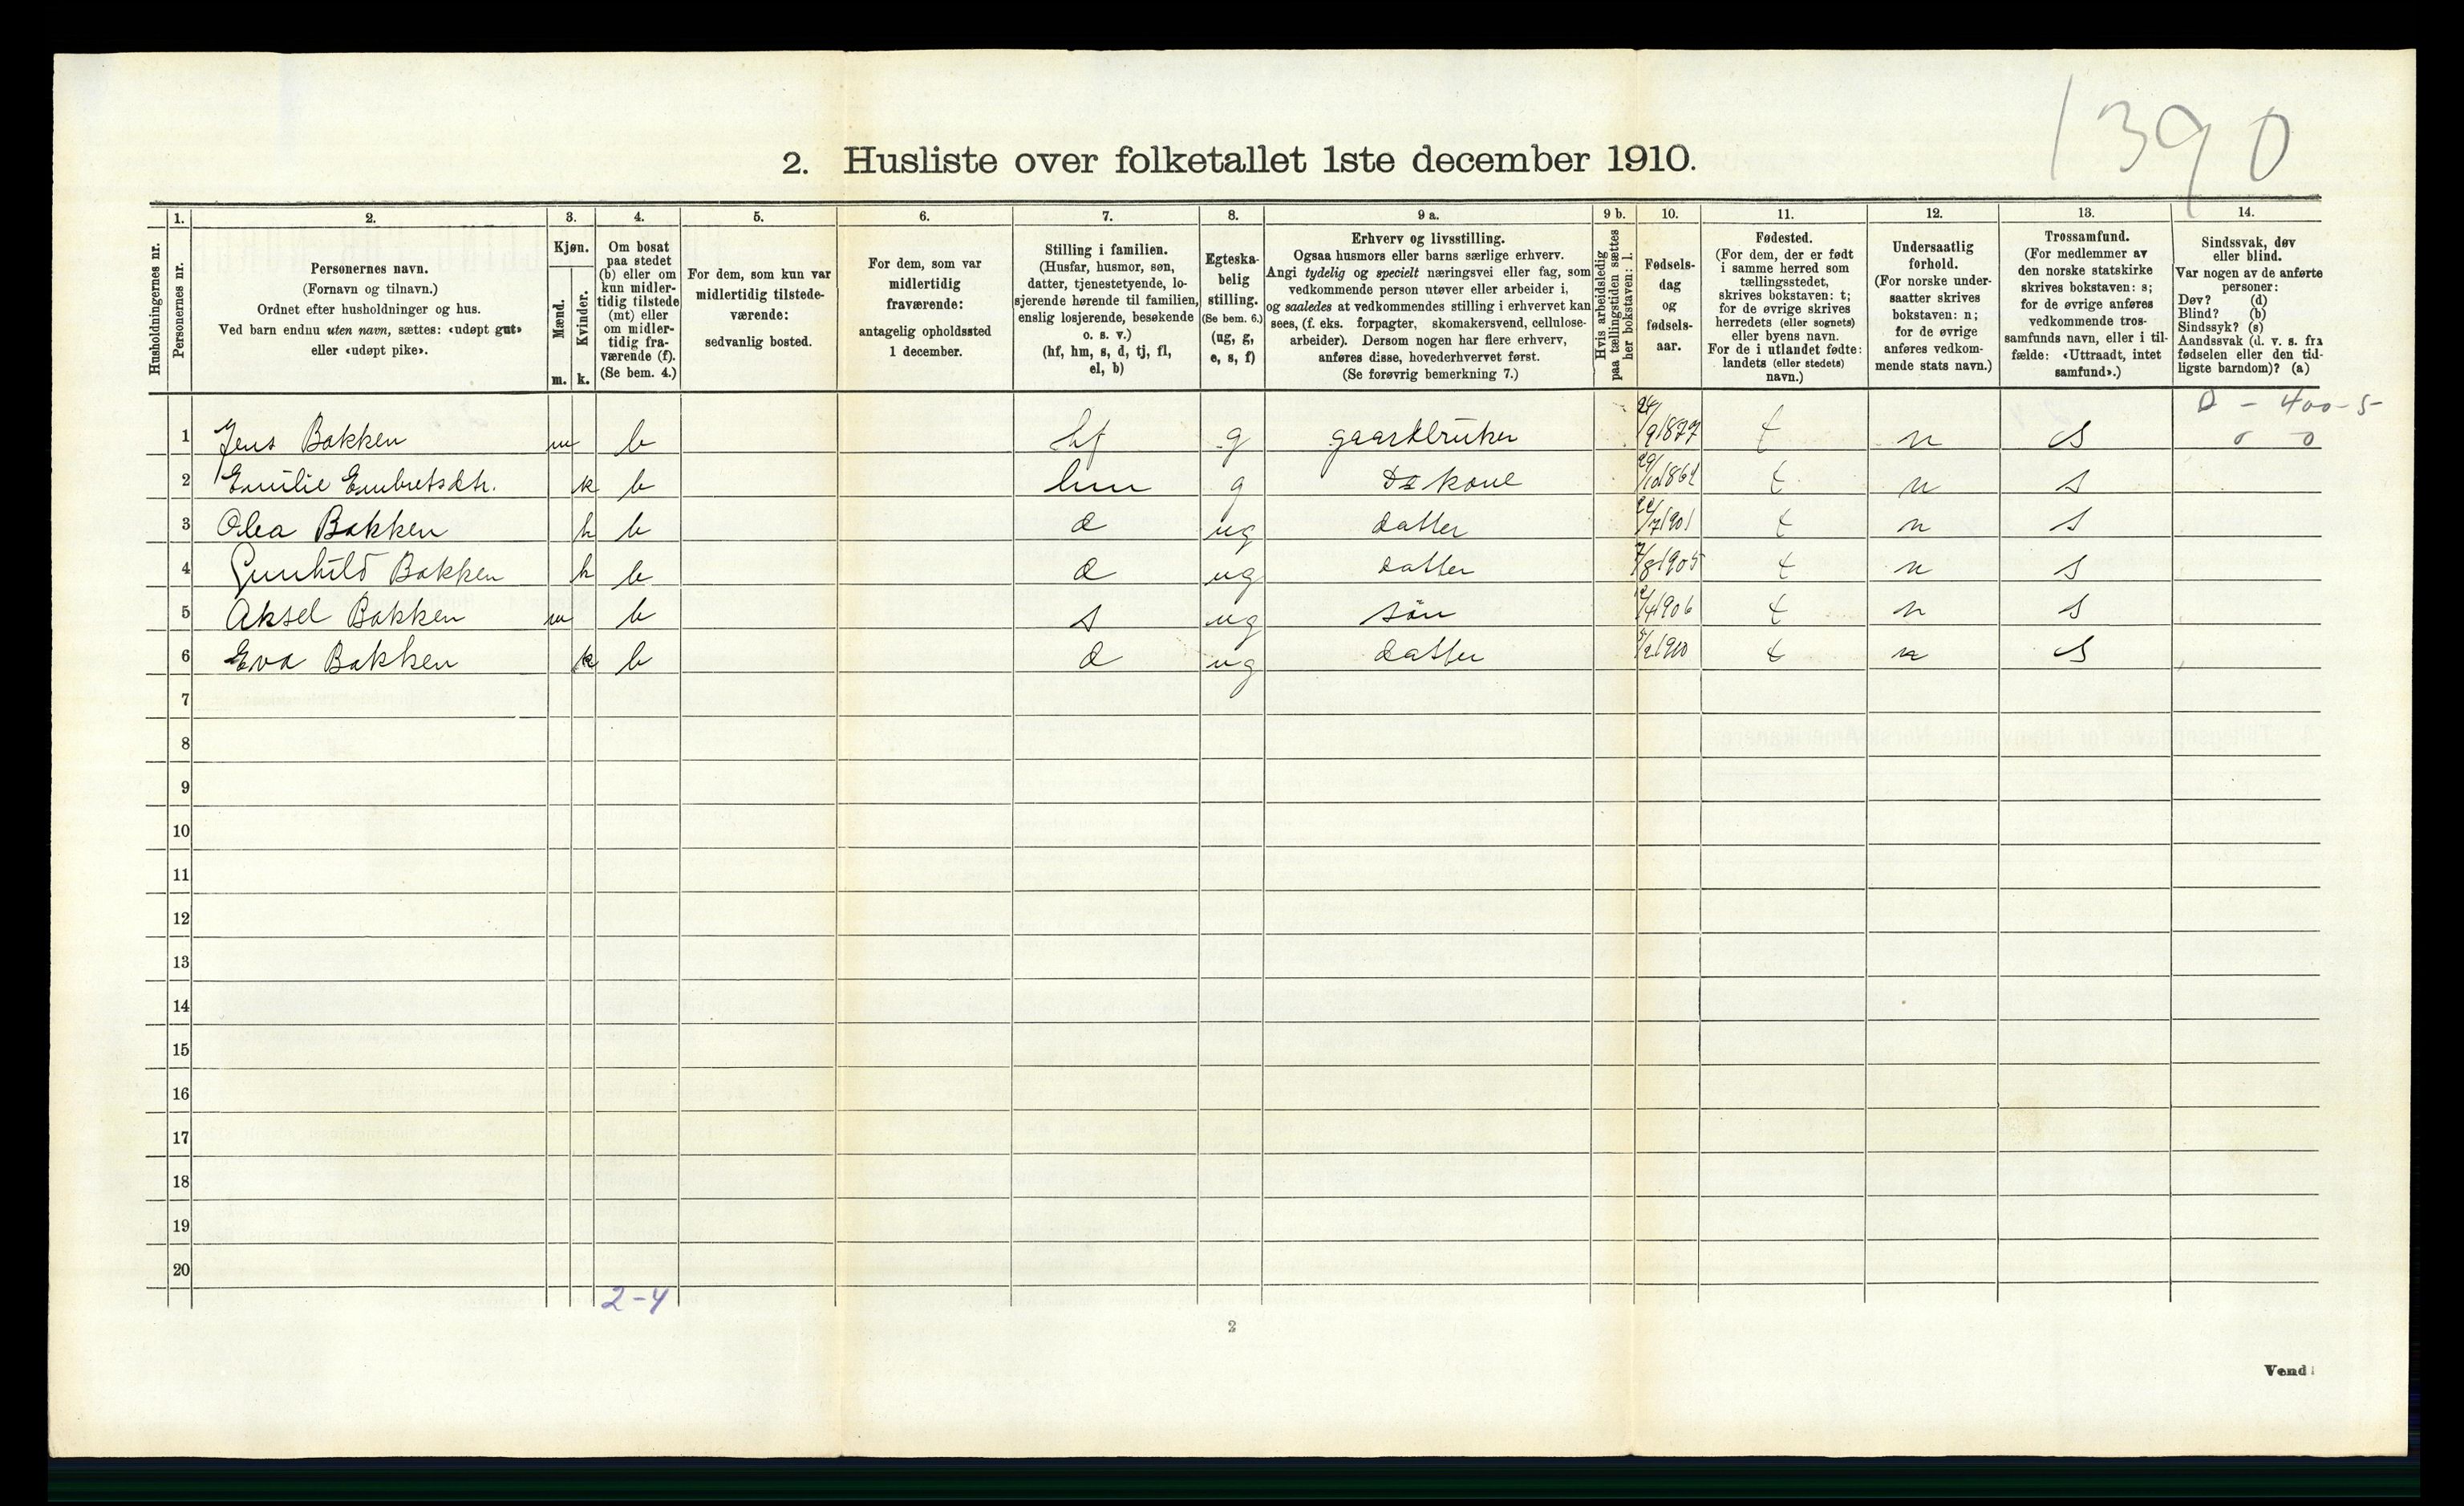 1390
2. Husliste over folketallet 1ste december 1910.
1. 2. 3. 4. 5. 6. 7. 8. 9 a. 9 b. 10. 11. 12. 13. 14.
Husholdningernes nr.
Personernes nr.
Personernes navn.
(Fornavn og tilnavn.)
Ordnet efter husholdninger og hus.
Ved barn endnu uten navn, sættes: «udøpt gut»
eller «udøpt pike».
Kjøn.
Mænd.
Kvinder.
m. k.
Om bosat
paa stedet
(b) eller om
kun midler-
tidig tilstede
(mt) eller
om midler-
tidig fra-
værende (f).
(Se bem. 4.)
For dem, som kun var
midlertidig tilstede-
værende:
sedvanlig bosted.
For dem, som var
midlertidig
fraværende:
antagelig opholdssted
1 december.
Stilling i familien.
(Husfar, husmor, søn,
datter, tjenestetyende, lo-
sjerende hørende til familien,
enslig losjerende, besøkende
o. s. v.)
(hf, hm, s, d, tj, fl,
el, b)
Egteska-
belig
stilling.
(Se bem. 6.)
(ug, g,
e, s, f)
Erhverv og livsstilling.
Ogsaa husmors eller barns særlige erhverv.
Angi tydelig og specielt næringsvei eller fag, som
vedkommende person utøver eller arbeider i,
og saaledes at vedkommendes stilling i erhvervet kan
sees, (f. eks. forpagter, skomakersvend, cellulose-
arbeider). Dersom nogen har flere erhverv,
anføres disse, hovederhvervet først.
(Se forøvrig bemerkning 7.)
Hvis arbeidsledig
paa tællingstiden sættes
her bokstaven: l.
Fødsels-
dag
og
fødsels-
aar.
Fødested.
(For dem, der er født
i samme herred som
tællingsstedet,
skrives bokstaven: t;
for de øvrige skrives
herredets (eller sognets)
eller byens navn.
For de i utlandet fødte:
landets (eller stedets)
navn.)
Undersaatlig
forhold.
(For norske under-
saatter skrives
bokstaven: n;
for de øvrige
anføres vedkom-
mende stats navn.)
Trossamfund.
(For medlemmer av
den norske statskirke
skrives bokstaven: s;
for de øvrige anføres
vedkommende tros-
samfunds navn, eller i til-
fælde: «Uttraadt, intet
samfund».)
Sindssvak, døv
eller blind.
Var nogen av de anførte
personer:
Døv? (d)
Blind? (b)
Sindssyk? (s)
Aandssvak (d. v. s. fra
fødselen eller den tid-
ligste barndom)? (a)
- 400-5-
1 Jens Bakken m b hf g gaardbruker 24/9 1877 t n s 0 0
2 Emilie Embretsdtr. k b hm g Ds kone t n s
3 Olea Bakken k b d ug datter t n s
4 Gunhild Bakken k b d ug datter 7/8 1905 t n s
5 Aksel Bakken m b s ug søn t n s
6 Eva Bakken k b d ug datter t n s
7
8
9
10
11
12
13
14
15
16
17
18
19
20
2-4
2
Vend!